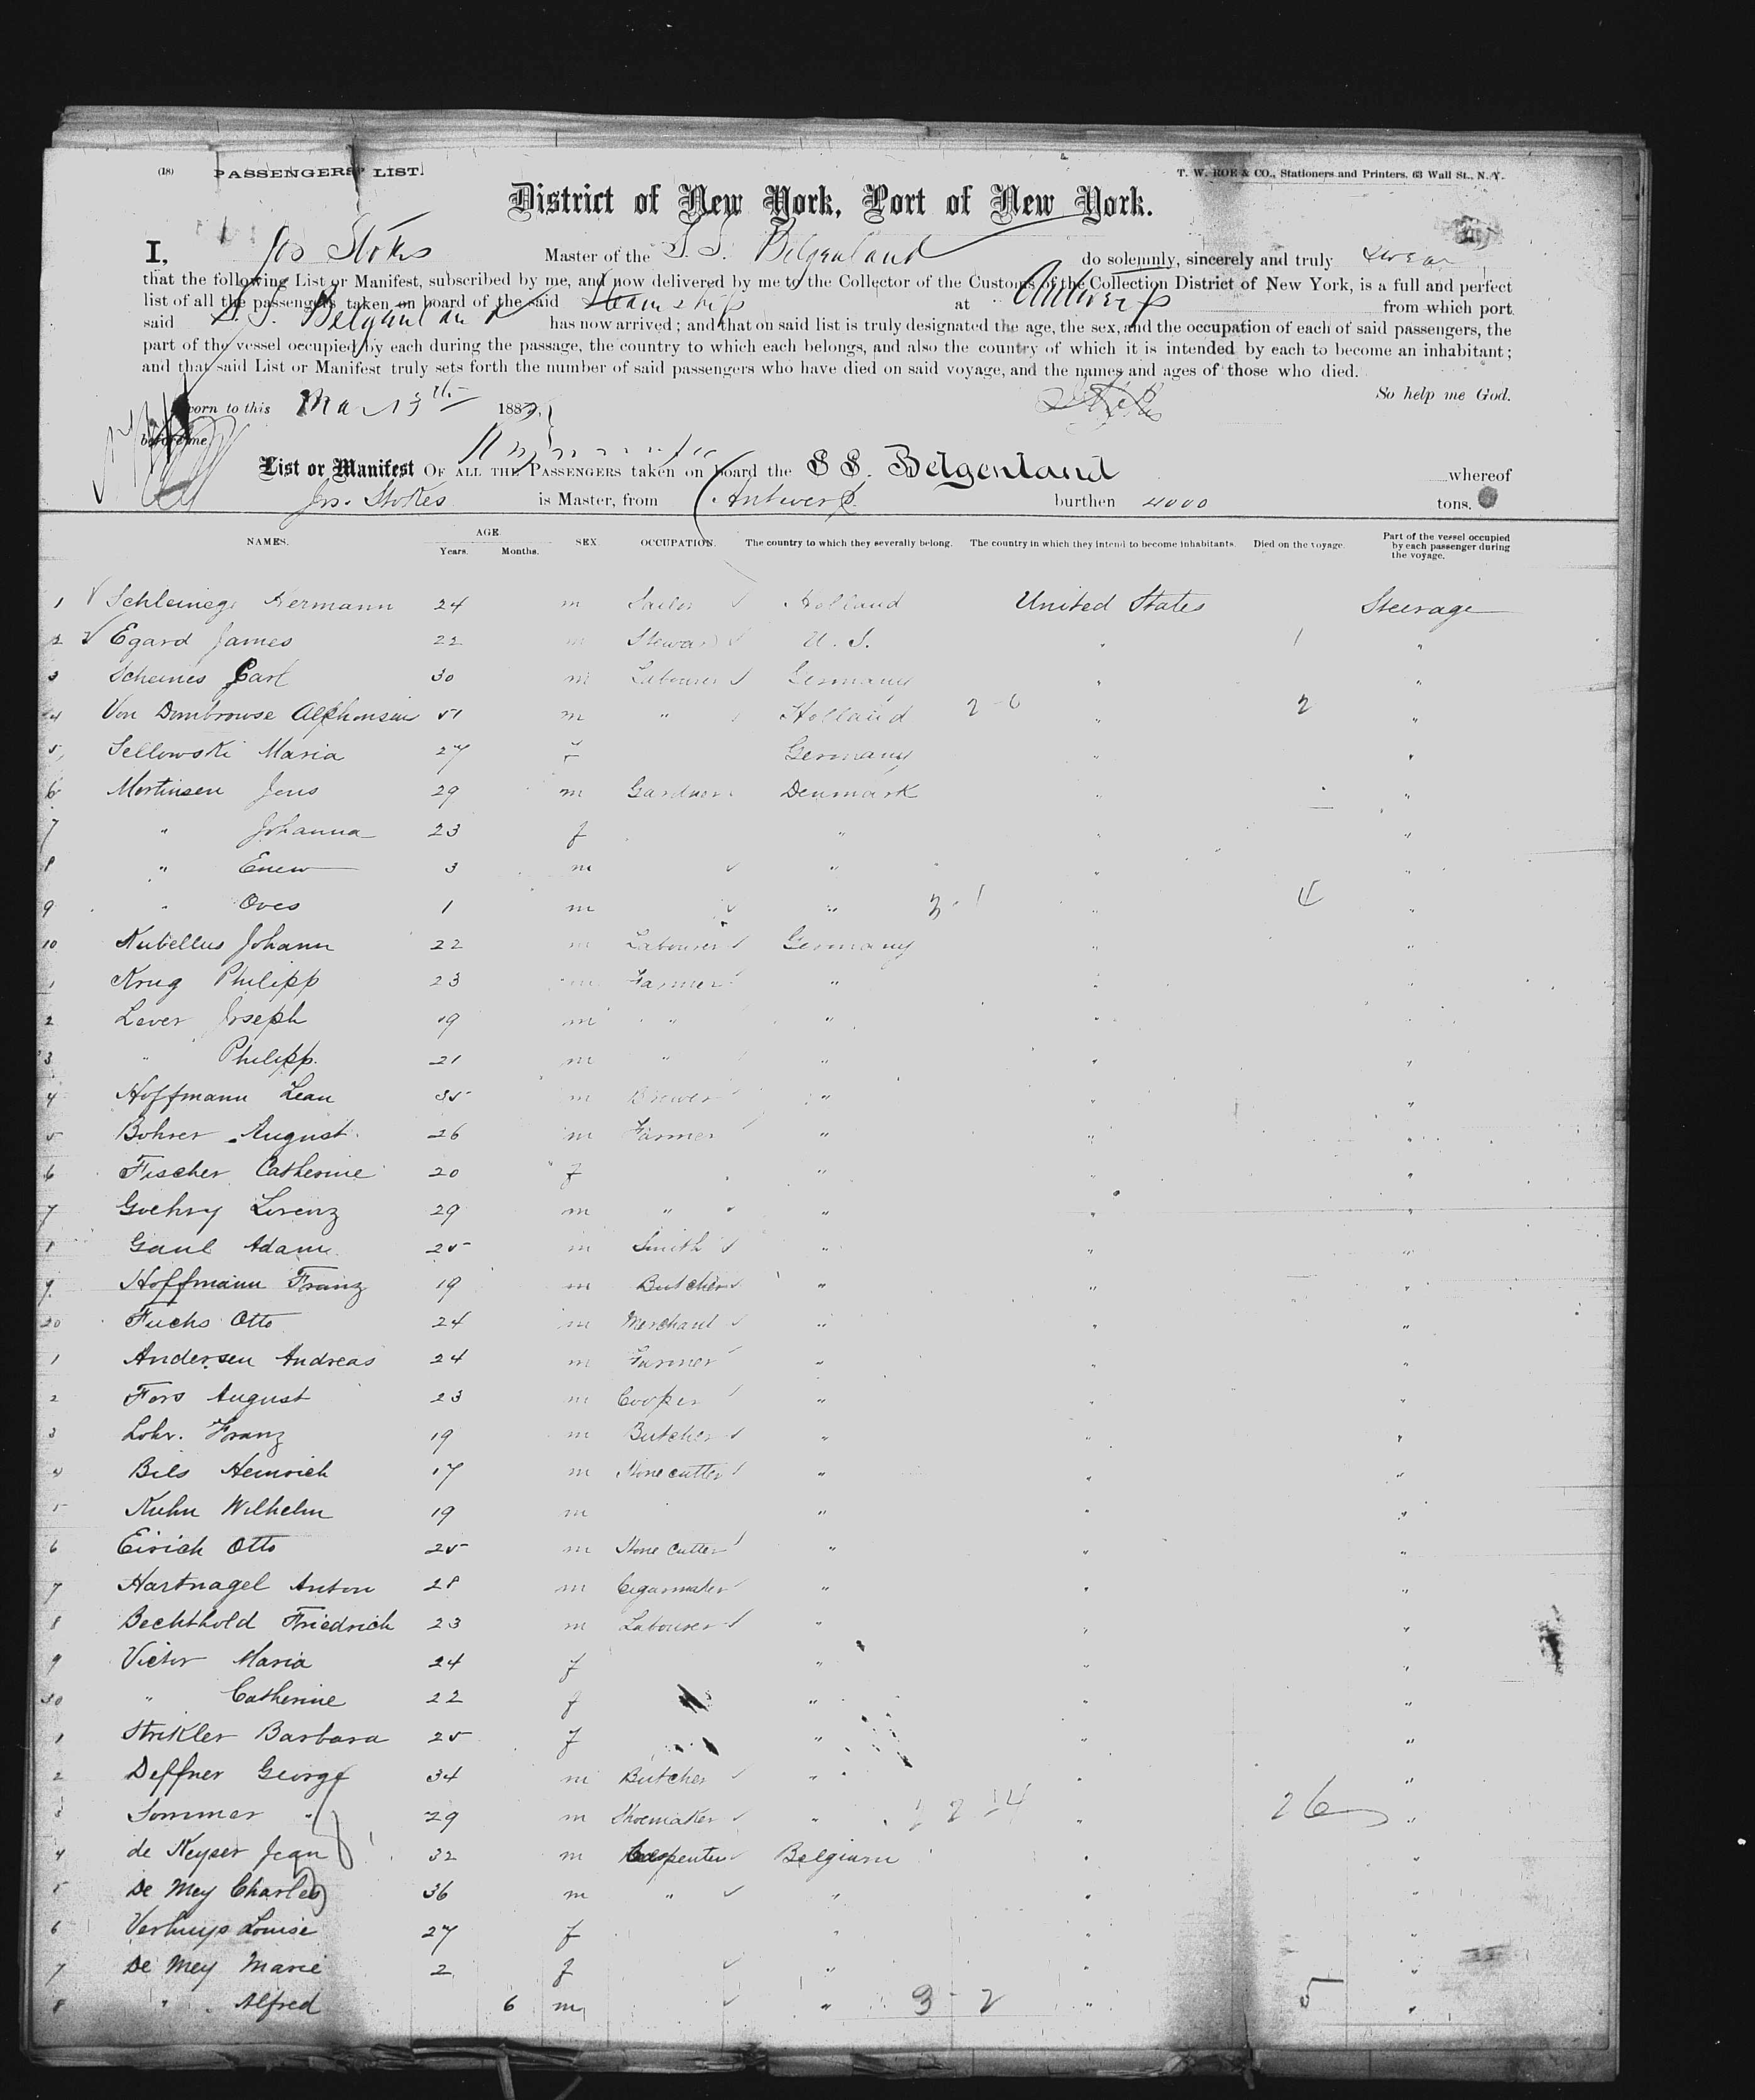 (18) PASSENGERS' LIST.
T. W. ROE & CO., Stationers and Printers, 63 Wall St., N. Y.
District of New York, Port of New York.
I, Jos Stokes Master of the S. S. Belgenland do solemnly, sincerely and truly swear
that the following List or Manifest, subscribed by me, and now delivered by me to the Collector of the Customs of the Collection District of New York, is a full and perfect
list of all the passengers taken on board of the said Steamship at Antwerp from which port
said S. S. Belgenland has now arrived; and that on said list is truly designated the age, the sex, and the occupation of each of said passengers, the
part of the vessel occupied by each during the passage, the country to which each belongs, and also the country of which it is intended by each to become an inhabitant;
and that said List or Manifest truly sets forth the number of said passengers who have died on said voyage, and the names and ages of those who died.
So help me God.
Sworn to this Mar 13th 188
before me
List or Manifest OF ALL THE PASSENGERS taken on board the SS. Belgenland whereof
Jos. Stokes is Master, from Antwerp burthen 4000 tons.
NAMES. AGE Years. Months. SEX OCCUPATION. The country to which they severally belong. The country in which they intend to become inhabitants. Died on the voyage. Part of the vessel occupied by each passenger during the voyage.
1 Hermann 24 m Sailor Holland United States Steerage
2 Egard James 22 m Steward U. S. " 1 "
3 Scheines Carl 30 m Labourer Germany " "
4 Von Dombrowse 51 m " Holland 2-0 " 2 "
5 Sellowski Maria 27 f Germany " "
6 Mortinsen Jens 29 m Gardner Denmark " "
7 " Johanna 23 f " " "
8 " Enew 3 m " " "
9 " Oves 1 m " 3-1 " 4 "
10 Kubellus Johann 22 m Labourer Germany " "
1 Krug Philipp 23 m Farmer " " "
2 Lever Joseph 19 m " " " "
3 " Philipp. 21 m " " " "
4 Hoffmann Lean 35 m Brewer " " "
5 Bohrer August 26 m Farmer " " "
6 Fischer Catherine 20 f " " "
7 Goehry Lorenz 29 m " " " "
8 Gaul Adam 25 m Smith " " "
9 Hoffmann Franz 19 m Butcher " " "
20 Fuchs Otto 24 m Merchant " " "
1 Andersen Andreas 24 m Farmer " " "
2 Fors August 23 m Cooper " " "
3 Lohr. Franz 19 m Butcher " " "
4 Bils Heinrich 17 m Stone cutter " " "
5 Kuhn Wilhelm 19 m " " "
6 Eirich Otto 25 m Stone Cutter " " "
7 Hartnagel Anton 28 m Cigarmaker " " "
8 Bechthold Friedrich 23 m Labourer " " "
9 Victor Maria 24 f " " "
30 " Catherine 22 f " " "
1 Strikler Barbara 25 f " " "
2 Deffner George 34 m Butcher " " "
3 Sommer " 29 m Shoemaker " " 26 "
4 de Keyser Jean 32 m Carpenter Belgium " "
5 De Mey Charles 36 m " " " "
6 Verhuys Louise 27 f " " "
7 De Mey Marie 2 f " " "
8 " Alfred 6 m " 3-2 " 5 "